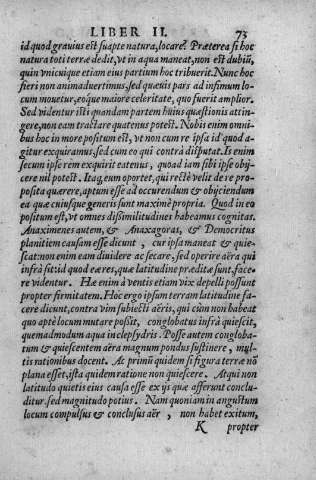 LIBER II. 73
id quod grauius est suapte natura, locare. Præterea si hoc
natura toti terræ dedit, vt in aqua maneat, non est dubiũ,
quin vnicuique etiam eius partium hoc tribuerit. Nunc hoc
fieri non animaduertimus, sed quæuis pars ad infimum lo-
cum mouetur, eoque maiore celeritate, quo fuerit amplior.
Sed videntur isti quandam partem huius quæstionis attin-
gere, non eam tractare quatenus potest. Nobis enim omni-
bus hoc in more positum est, vt non cum re ipsa id quod a-
gitur exquiramus, sed cum eo qui contra disputat. Is enim
secum ipse rem exquirit eatenus, quoad iam sibi ipse obijce-
re nil potest. Itaq; eum oportet, qui rectè velit de re pro-
posita quærere, aptum esse ad occurendum & obijciendum
ea quæ cuiusque generis sunt maximè propria. Quod in eo
positum est, vt omnes dissimilitudines habeamus cognitas.
Anaximenes autem, & Anaxagoras, & Democritus
planitiem causam esse dicunt, cur ipsa maneat & quie-
scat: non enim eam diuidere ac secare, sed operire aëra qui
infrà sit: id quod eæ res, quæ latitudine præditæ sunt, face-
re videntur. Hæ enim à ventis etiam vix depelli possunt
propter firmitatem. Hoc ergo ipsum terram latitudine fa-
cere dicunt, contra vim subiecti aëris, qui cùm non habeat
quo aptè locum mutare possit, conglobatus infrà quiescit,
quemadmodum aqua in clepsydris. Posse autem congloba-
tum & quiescentem aëra magnum pondus sustinere, mul-
tis rationibus docent. Ac primũ quidem si figura terræ nõ
plana esset, ista quidem ratione non quiescere. Atqui non
latitudo quietis eius causa esse ex ijs quæ afferunt conclu-
ditur: sed magnitudo potius. Nam quoniam in angustum
locum compulsus & conclusus aër, non habet exitum,
K propter